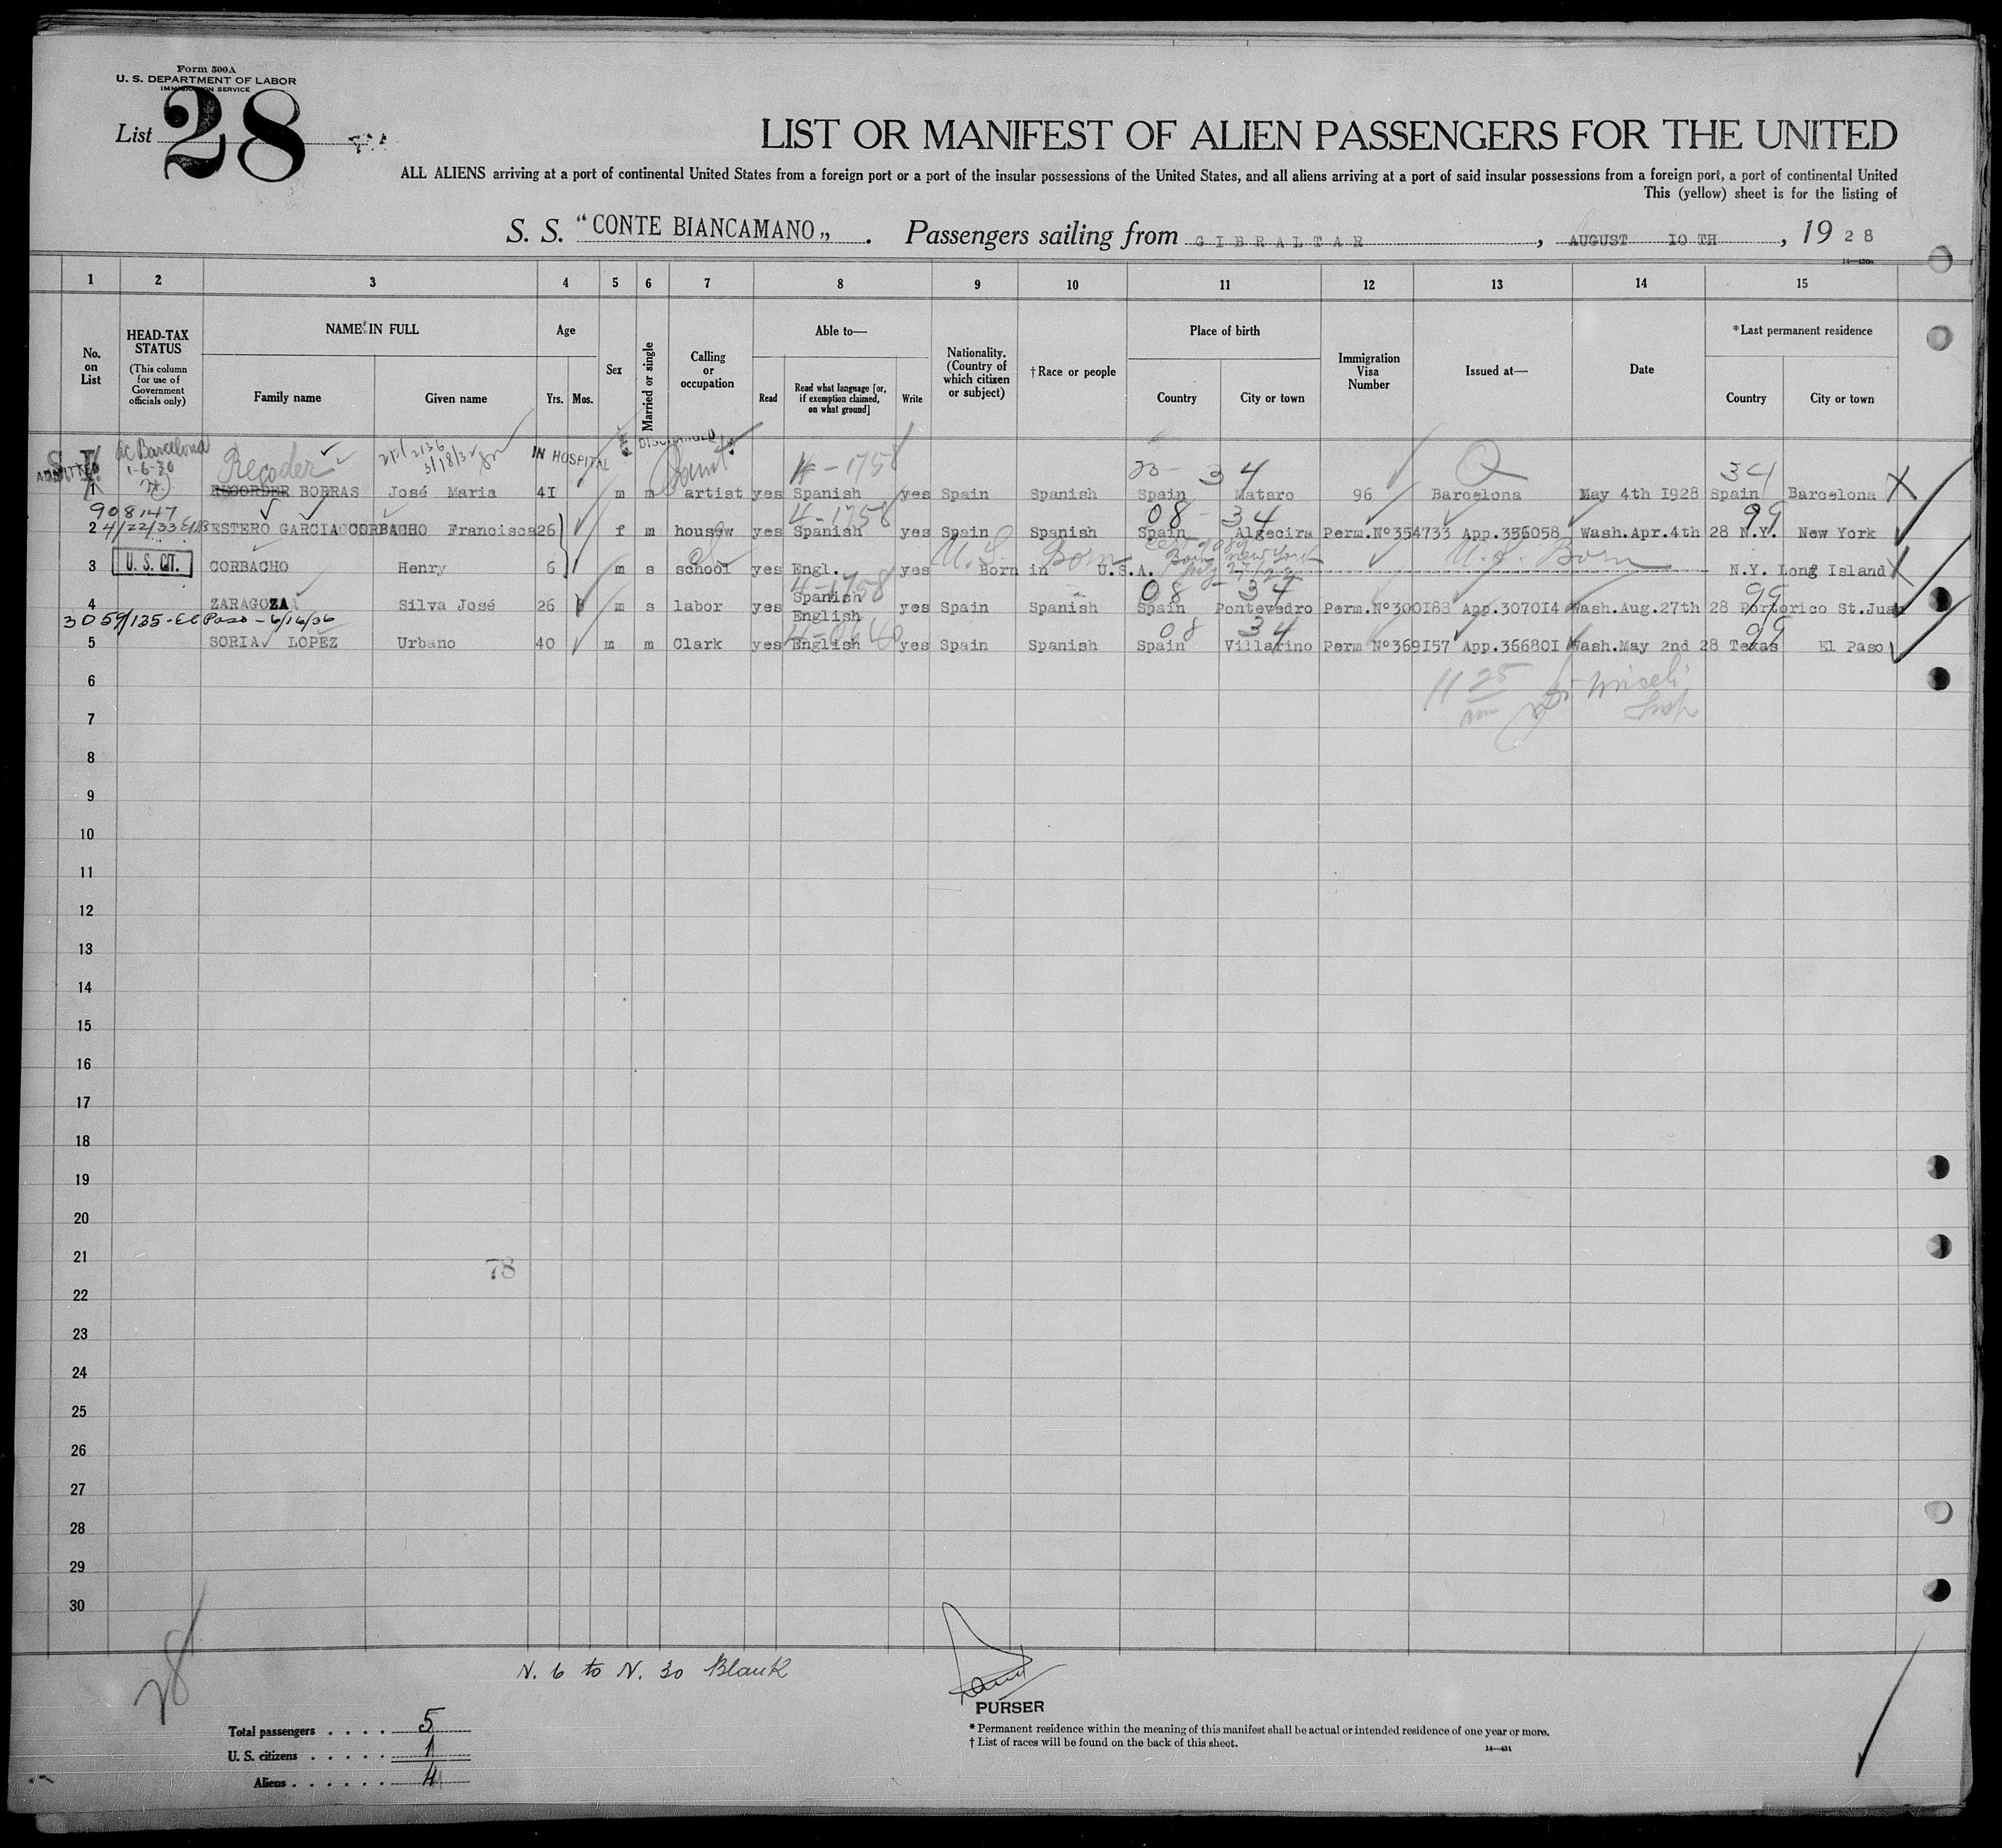 Form 500A
U. S. DEPARTMENT OF LABOR
IMMIGRATION SERVICE
List 28
LIST OR MANIFEST OF ALIEN PASSENGERS FOR THE UNITED
ALL ALIENS arriving at a port of continental United States from a foreign port or a port of the insular possessions of the United States, and all aliens arriving at a port of said insular possessions from a foreign port, a port of continental United
This (yellow) sheet is for the listing of
S. S. "CONTE BIANCAMANO„ . Passengers sailing from GIBRALTAR , AUGUST IO TH , 19 28
1 2 3 4 5 6 7 8 9 10 11 12 13 14 15
No. on List
HEAD-TAX STATUS
(This column for use of Government officials only)
NAME IN FULL
Family name Given name
Age
Yrs. Mos.
Sex
Married or single
Calling or occupation
Able to—
Read
Read what language [or, if exemption claimed, on what ground]
Write
Nationality. (Country of which citizen or subject)
†Race or people
Place of birth
Country City or town
Immigration Visa Number
Issued at—
Date
*Last permanent residence
Country City or town
Barcelona 1-6-30 Recoder 3/18/32 IN HOSPITAL DISCHARGED 4-1758 34 34
ADMITTED
1 RECORDER BORRAS José Maria 4I m m artist yes Spanish yes Spain Spanish Spain Mataro 96 Barcelona May 4th I928 Spain Barcelona
908147 4-1758 08 - 34 99
2 4/22/33 ESTERO GARCIA CORBACHO Francisca 26 f m housew yes Spanish yes Spain Spanish Spain Algecira Perm.Nº354733 App.356058 Wash.Apr.4th 28 N.Y. New York
U.S. Born Born New York U.S. Born
3 U. S. CIT. CORBACHO Henry 6 m s school yes Engl. yes Born in U.S.A. N.Y. Long Island
4-1758 08 - 34 99
4 ZARAGOZA Silva José 26 m s labor yes Spanish English yes Spain Spanish Spain Pontevedro Perm.Nº300I88 App.3070I4 Wash.Aug.27th 28 Portorico St.Juan
3059/135 - El Paso - 6/16/36 08 34 99
5 SORIA LOPEZ Urbano 40 m m Clark yes English yes Spain Spanish Spain Villarino Perm Nº369I57 App.36680I Wash.May 2nd 28 Texas El Paso
6
11 25 am
7
8
9
10
11
12
13
14
15
16
17
18
19
20
21
78
22
23
24
25
26
27
28
29
30
28
N. 6 to N. 30 Blank
PURSER
Total passengers . . . . 5
U. S. citizens . . . . . 1
Aliens . . . . . . 4
* Permanent residence within the meaning of this manifest shall be actual or intended residence of one year or more.
† List of races will be found on the back of this sheet.